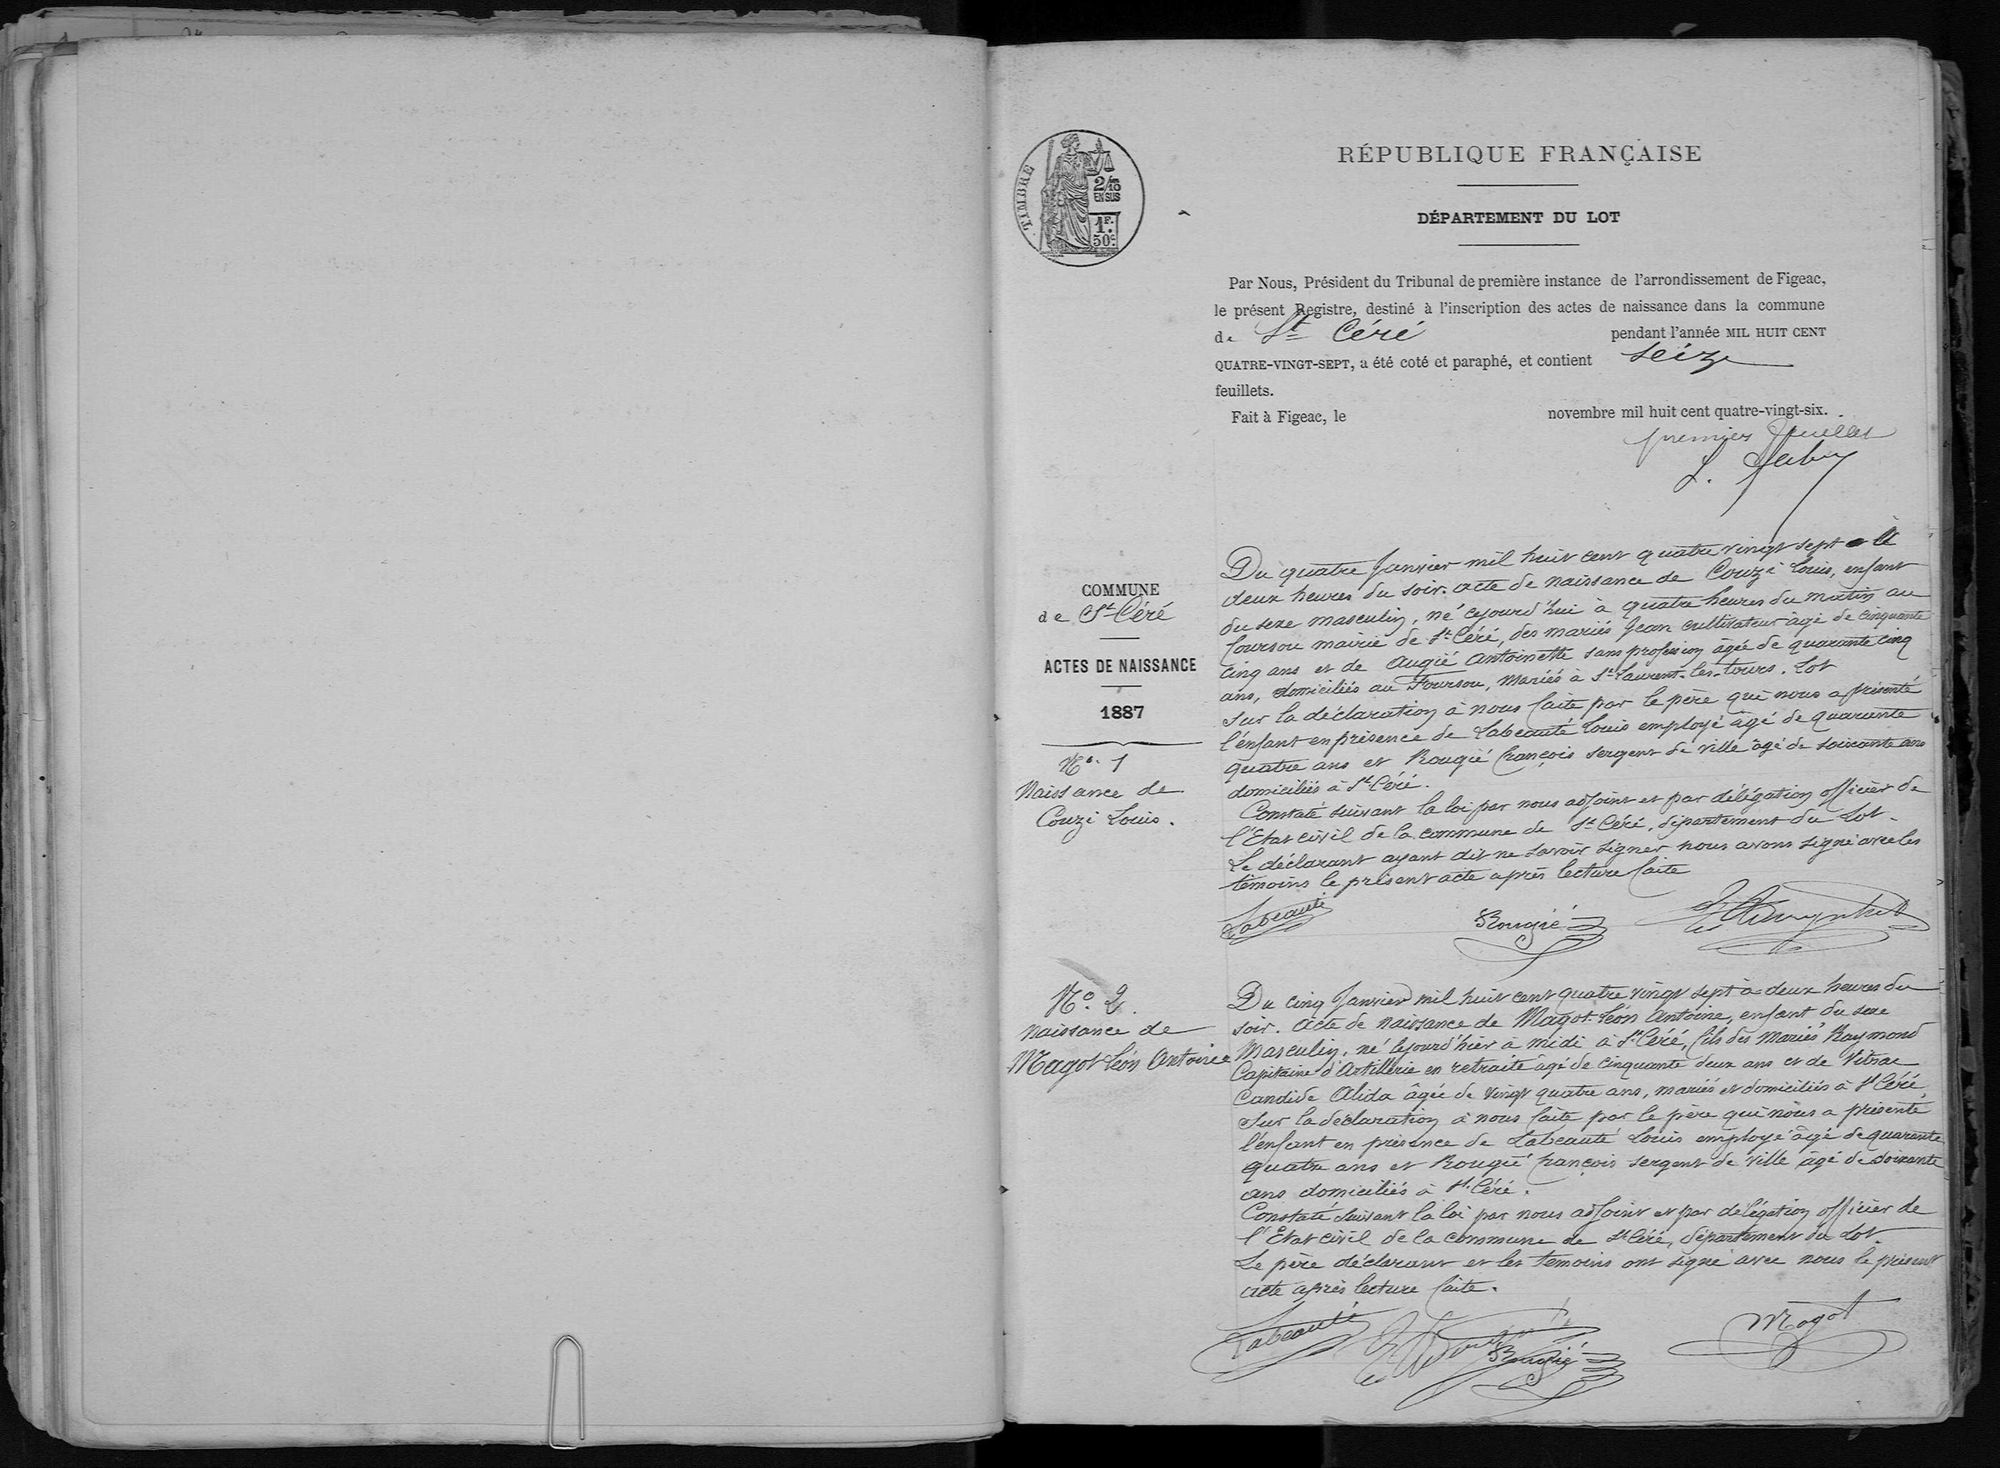 TIMBRE
2/10
EN SUS
1F.
50c.
RÉPUBLIQUE FRANÇAISE
DÉPARTEMENT DU LOT
Par Nous, Président du Tribunal de première instance de l'arrondissement de Figeac,
le présent Registre, destiné à l'inscription des actes de naissance dans la commune
de St Céré pendant l'année MIL HUIT CENT
QUATRE-VINGT-SEPT, a été coté et paraphé, et contient seize
feuillets.
Fait à Figeac, le novembre mil huit cent quatre-vingt-six.
premier feuillet
COMMUNE
de St Céré
ACTES DE NAISSANCE
1887
No. 1
Naissance de
Couzi Louis.
Du quatre Janvier mil huit cent quatre vingt sept
deux heures du soir. acte de naissance de Couzi Louis, enfant
du sexe masculin, né cejourd'hui à quatre heures du matin au
mairie de St Céré, des mariés Jean cultivateur âgé de cinquante
cinq ans et de Augié Antoinette sans profession âgée de quarante cinq
ans, domiciliés au Foursou, Mariés à St Laurent-les-tours. Lot
Sur la déclaration à nous faite par le père qui nous a présenté
l'enfant en présence de Labeauté Louis employé âgé de quarante
quatre ans et Rougié François sergent de ville âgé de soixante ans
domiciliés à St Céré.
Constaté suivant la loi par nous adjoint et par délégation officier de
l'Etat civil de la commune de St Céré, département du Lot.
Le déclarant ayant dit ne savoir signer nous avons signé avec les
témoins le présent acte après lecture faite
Labeauté Rougié
No. 2.
naissance de
Magot Léon Antoine
Du cinq Janvier mil huit cent quatre vingt sept à deux heures du
soir. Acte de naissance de Magot Léon Antoine, enfant du sexe
Masculin, né lejourd'hier à midi à St Céré, fils des Mariés Raymond
Capitaine d'Artillerie en retraite âgé de cinquante deux ans et de Vitrac
Candide Alida âgée de vingt quatre ans, mariés et domiciliés à St Céré
Sur la déclaration à nous faite par le père qui nous a présenté
l'enfant en présence de Labeauté Louis employé âgé de quarante
quatre ans et Rougié François sergent de ville âgé de soixante
ans domiciliés à St. Céré.
Constaté suivant la loi par nous adjoint et par délégation officier de
l'Etat civil de la commune de St Céré, département du Lot.
Le père déclarant et les témoins ont signé avec nous le présent
acte après lecture faite.
Labeauté Rougié Magot